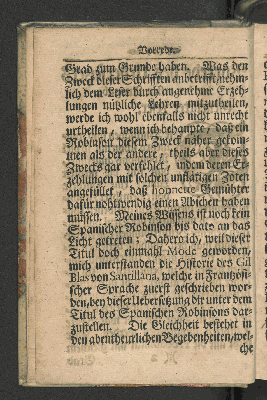 Vorrede.
Grad zum Grunde haben. Was den
Zweck dieser Schrifften anbetrifft, nehm-
lich dem Leser durch angenehme Erzeh-
lungen nützliche Lehren mitzutheilen,
werde ich wohl ebenfalls nicht unrecht
urtheilen, wenn ich behaupte, daß ein
Robinson diesem Zweck näher gekom-
men als der andere, theils aber dieses
Zwecks gar verfehlet, indem deren Er-
zehlungen mit solchen unflätigen Zoten
angefüllet, daß honnette Gemühter
dafür nohtwendig einen Abscheu haben
müssen. Meines Wissens ist noch kein
Spanischer Robinson bis dato an das
Licht getreten; Dahero ich, weil dieser
Titul doch einmahl Mode geworden,
mich unterstanden die Historie des Gil
Blas von Santillana, welche in Frantzösi-
scher Sprache zuerst geschrieben wor-
den, bey dieser Uebersetzung dir unter dem
Titul des Spanischen Robinsons dar-
zustellen. Die Gleichheit bestehet in
den abentheurlichen Begebenheiten, wel-
che